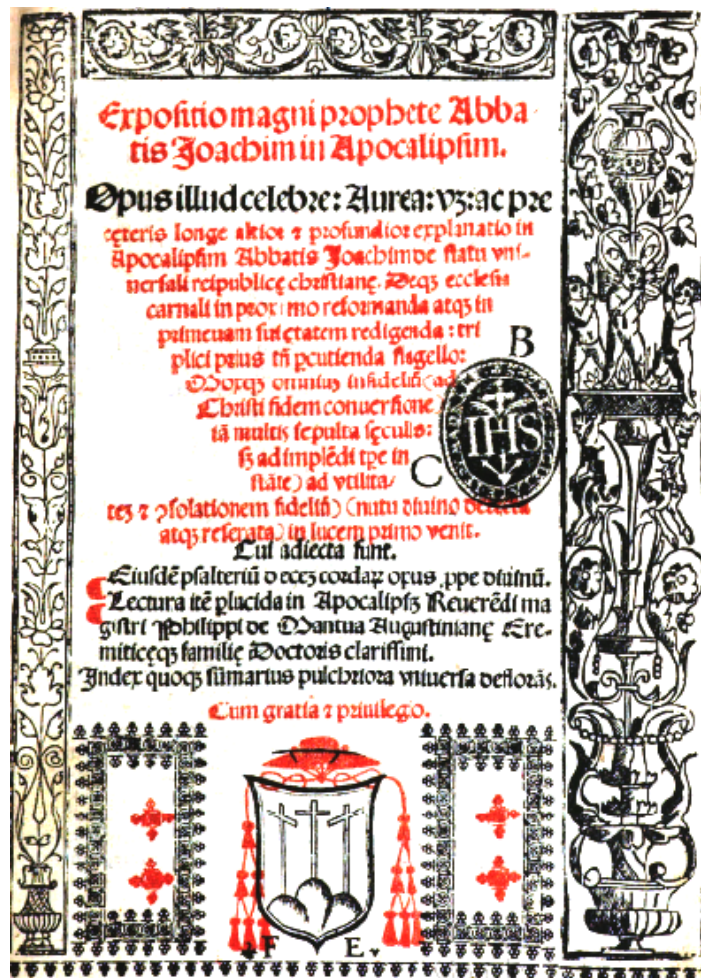 Expositio magni prophete Abba
tis Joachim in Apocalipsim.
Opus illud celebre: Aurea: vz: ac pre
cęteris longe altior ⁊ profundior explanatio in
Apocalipsim Abbatis Joachim de statu vni-
uersali reipublicę christianę. Deqꝫ ecclesia
carnali in proximo reformanda atqꝫ in
primeuam sui ętatem redigenda: tri
plici prius tñ ꝑcutienda flagello:
omniuꝫ infideliũ ad
Christi fidem conuersione
iã multis sepulta sęculis:
sꝫ ad implẽdi tꝑe in
stãte) ad vtilita/
teꝫ ⁊ ↄsolationem fideliũ) (nutu diuino detecta
atqꝫ reserata) in lucem primo venit.
Cui adiecta sunt.
Eiusdẽ psalteriũ deceꝫ cordaꝝ opus ꝓpe diuinũ.
Lectura itẽ ꝑlucida in Apocalipsꝫ Reuerẽdi ma
gistri Philippi de Mantua Augustinianę Ere-
miticęqꝫ familię Doctoris clarissimi.
Index quoqꝫ sũmarius pulchriora vniuersa deflorãs.
Cum gratia ⁊ priuilegio.
B
IHS
C
F E